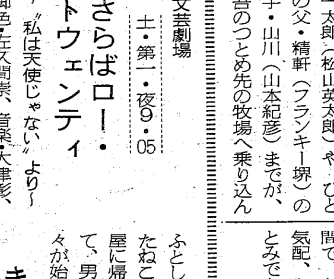 太郎(松山英太郎)や、ひと
の父・精軒(フランキー堺)の
子・山川(山本紀彦)までが、
吾のつとめ先の牧場へ乗り込ん
文芸劇場
土・第一・夜9・05
さらばロー・
トウェンティ
〝私は天使じゃない〟より〜
脚色・佐久間崇、音楽・大津彰、
間で
気配、
とみで
ふとし
たねこ
屋に帰
て、男
々が始
き